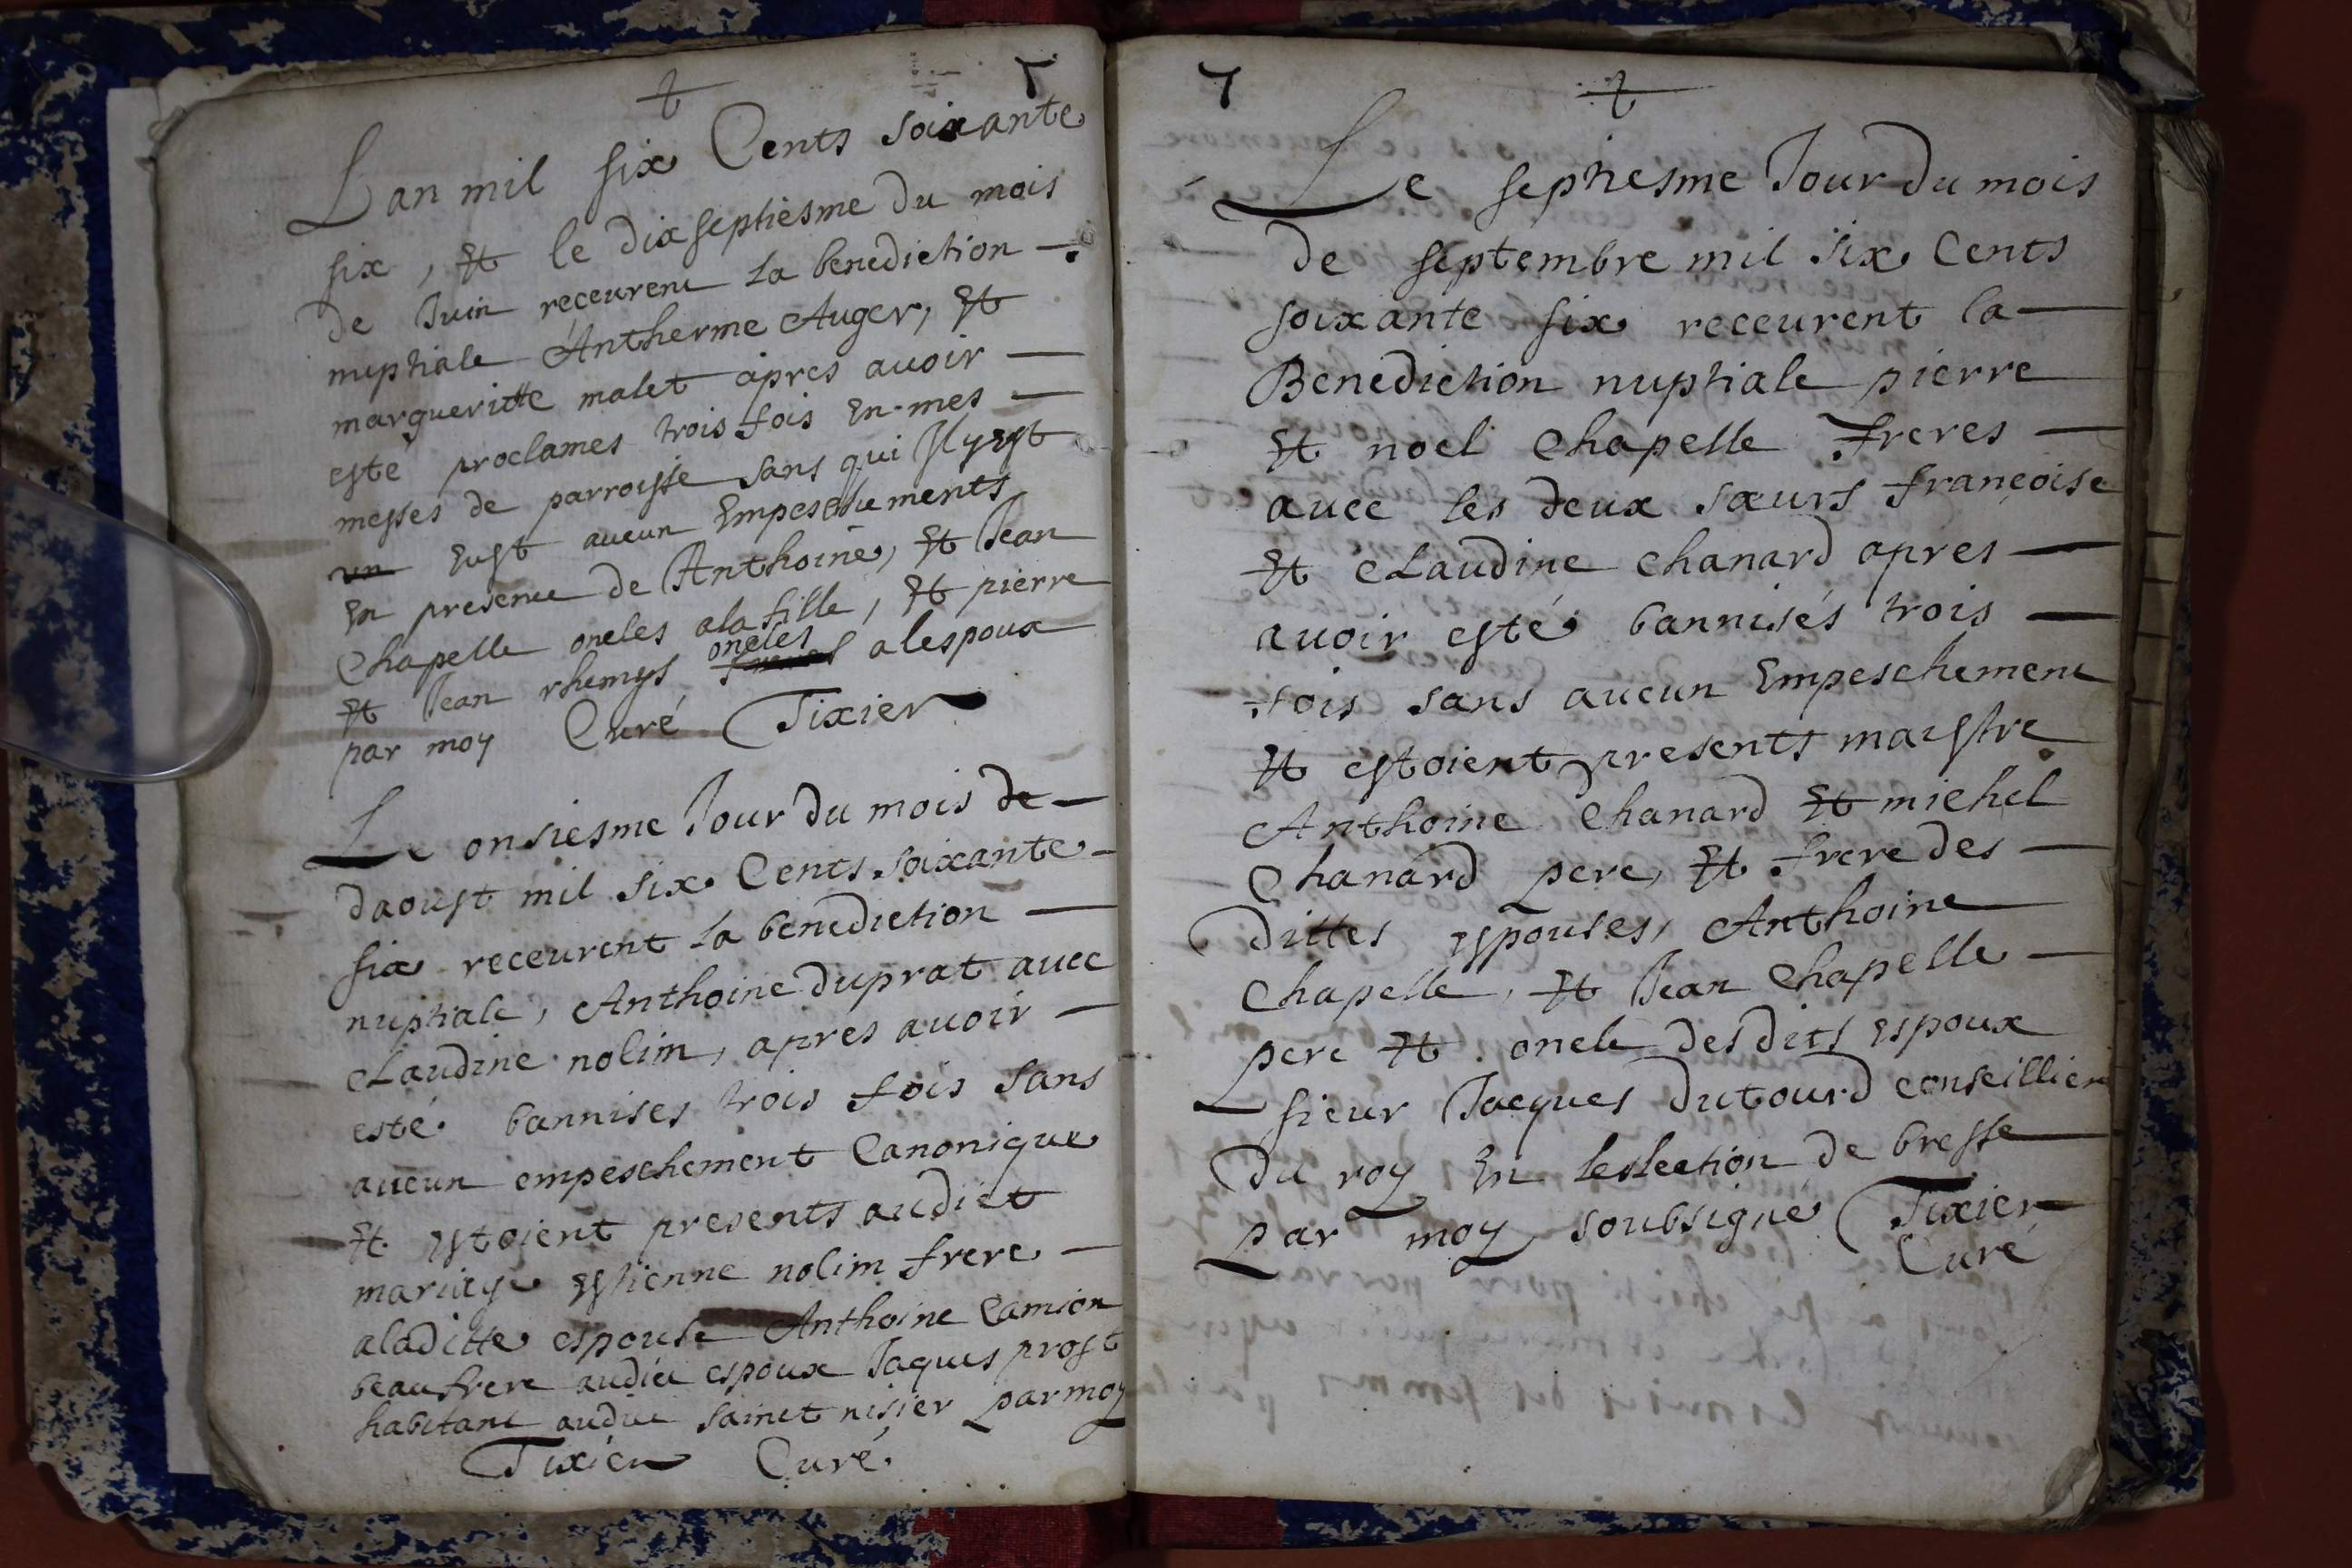 Lan mil six Cents soixante
six, Et le dixseptiesme du mois
de Juin receurent la benediction
nuptiale Antherme Auger, Et
margueritte malet apres auoir
esté proclames trois fois En mes
messes de parroisse sans qui Il y eyt
un Eust aucun Empeschements
En presence de Anthoine, Et Jean
Chapelle oncles a la fille, Et pierre
oncles
Et Jean rhemys freres a lespoux
par moy Curé Tixier
Le onsiesme Jour du mois de
daoust mil six Cents soixante
six receurent la benediction
nuptiale, Anthoine duprat auec
claudine nolim, apres auoir
esté bannises trois fois sans
aucun empeschement Canonique
Et Estoient presents audict
mariage Estienne nolim frere
a laditte espouse Anthoine Camion
beaufrere audict espoux Jaques prost
habitant audict sainct nisier par moy
Tixier Curé
7
Le septiesme Jour du mois
de septembre mil six Cents
soixante six receurent la
Benediction nuptiale pierre
Et noel Chapelle freres
auec les deux sœurs françoise
Et claudine Chanard apres
auoir esté bannisés trois
fois sans aucun Empeschement
Et estoient presents maistre
Anthoine Chanard Et michel
Chanard pere, Et frere des
dittes Espouses, Anthoine
Chapelle, Et Jean Chapelle
pere Et oncle desdits Espoux
sieur Jacques dutourd conseillier
du roy En leslection de bresse
par moy soubsigné Tixier
Curé